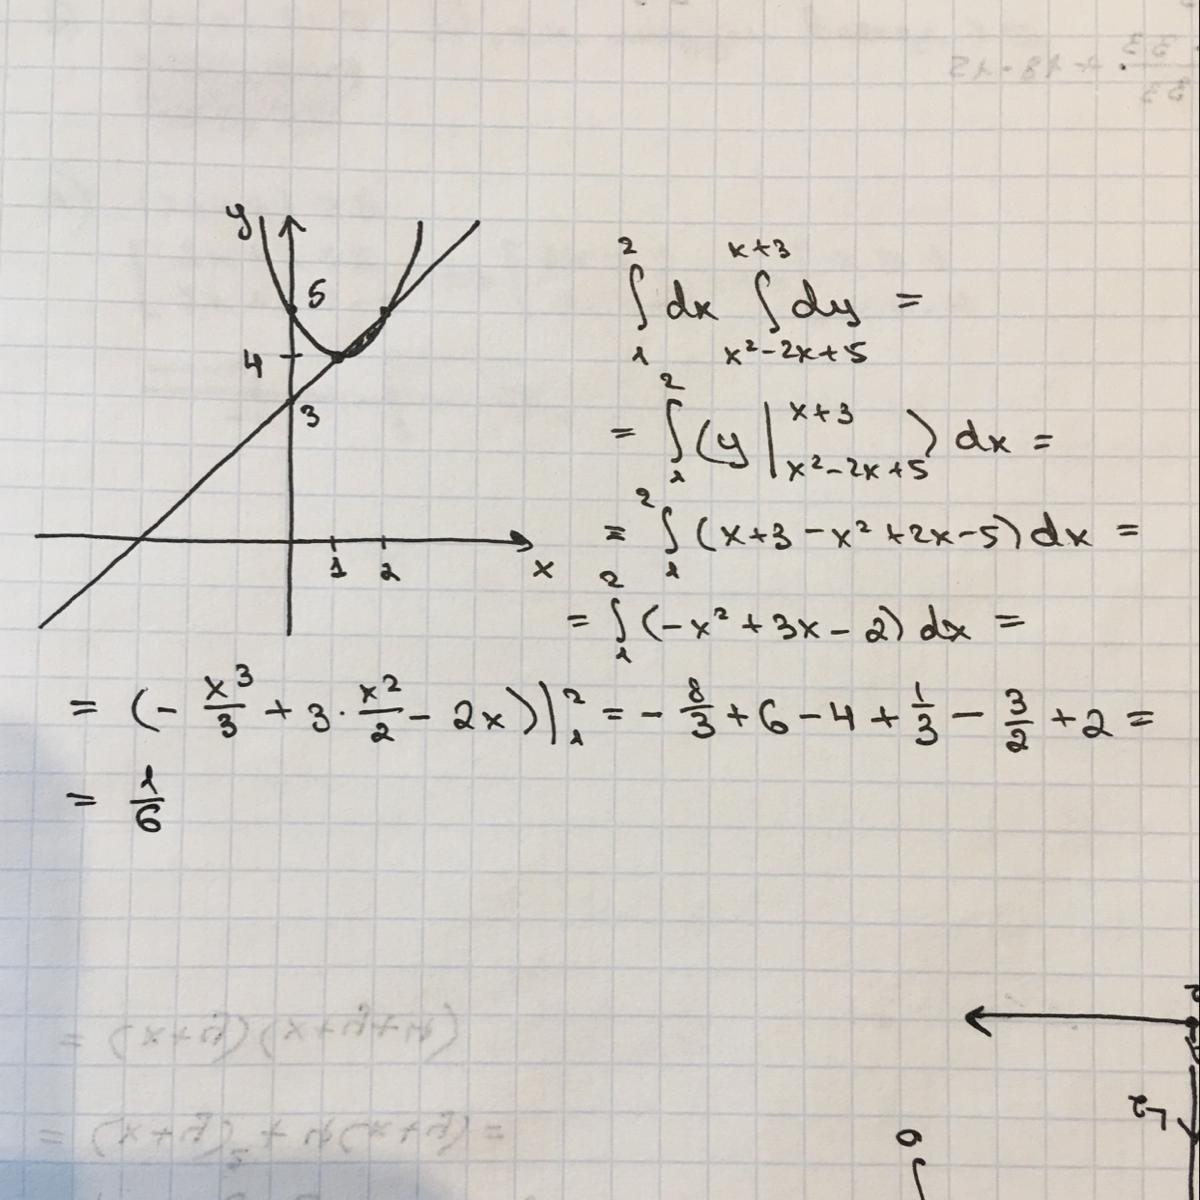 y
5
4
3
1 2
x
∫₁² dx ∫_{x²-2x+5}^{x+3} dy =
= ∫₁² (y |_{x²-2x+5}^{x+3}) dx =
= ∫₁² (x+3-x²+2x-5) dx =
= ∫₁² (-x²+3x-2) dx =
= (- x³/3 + 3 · x²/2 - 2x)|₁² = - 8/3 + 6 - 4 + 1/3 - 3/2 + 2 =
= 1/6